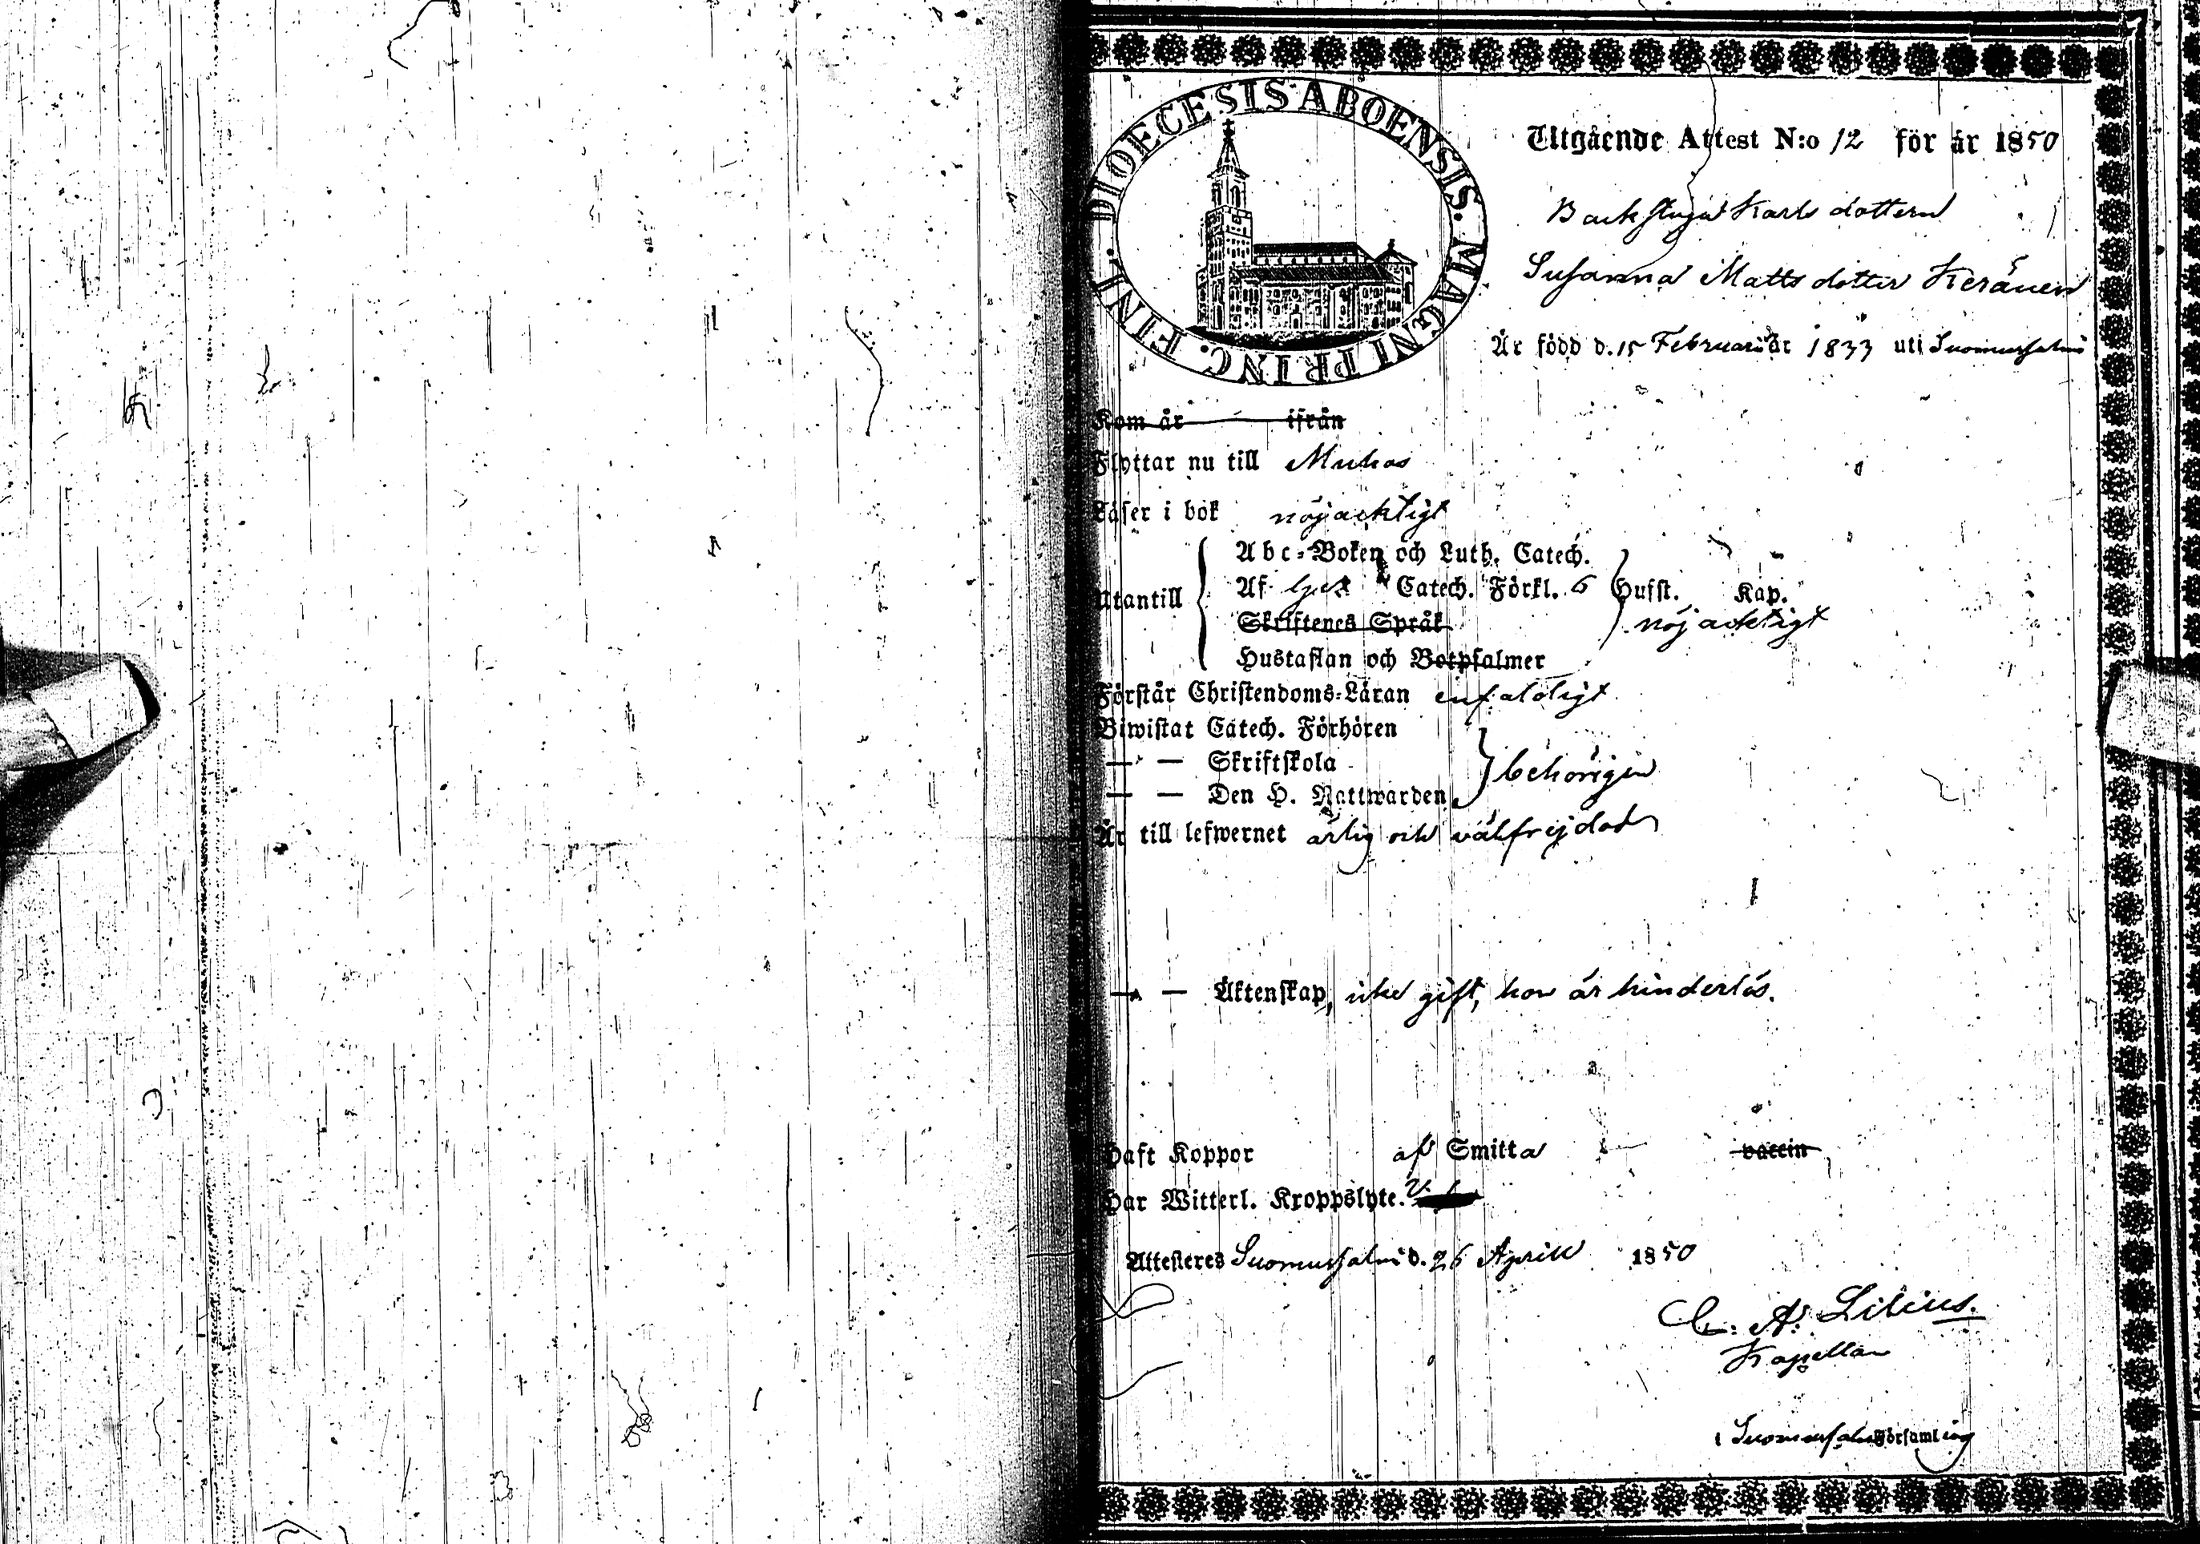 DIOECESIS ABOENSIS. MAGNI PRINC. FINL.
Utgående Attest N:o 12 för år 1850
Backstugu Karls dottern
Susanna Matts dotter Keränen
Är född d. 15 Februarii år 1833 uti Suomussalmi
Kom år ifrån
Flyttar nu till Muhos
Läser i bok nöjachtigt
Abc-Boken och Luth. Catech.
Utantill Af Catech. Förkl. 6 Hufst. Kap.
Skriftenes Språk nöjachtigt
Hustaflan och Botpsalmer
Förstår Christendoms-Läran enfaldigt
Biwistat Catech. Förhören
— — Skriftskola behörigen
— — Den H. Nattwarden
Är till lefwernet ärlig och välfrejdad
— — Äktenskap, icke gift, hon är hinderlös.
Haft Koppor af Smitta vaccin
Har Witterl. Kroppslyte.
Attesteres Suomussalmi d. 26 Aprill 1850
C. A. Lilius.
Kapellan
i Suomussalmi Församling